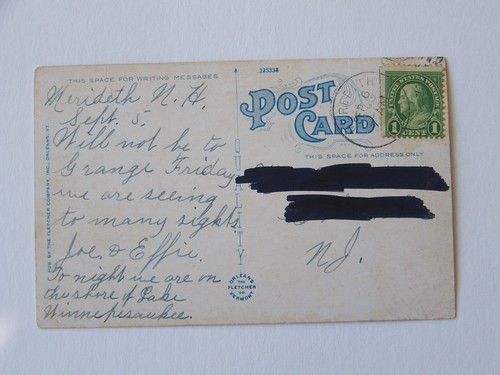 THIS SPACE FOR WRITING MESSAGES
Merideth N. H.
Sept. 5
Will not be to
Grange Friday
we are seeing
to many sights.
Joe. & Effie.
To night we are on
the shore of Lake
Winnepesaukee.
PUB. BY THE FLETCHER COMPANY, INC., ORLEANS, VT.
QUALITY
125538
POST
CARD
THIS SPACE FOR ADDRESS ONLY
NJ.
ORLEANS
THE
FLETCHER
CO.
VERMONT
UNITED STATES POSTAGE
1 CENT 1